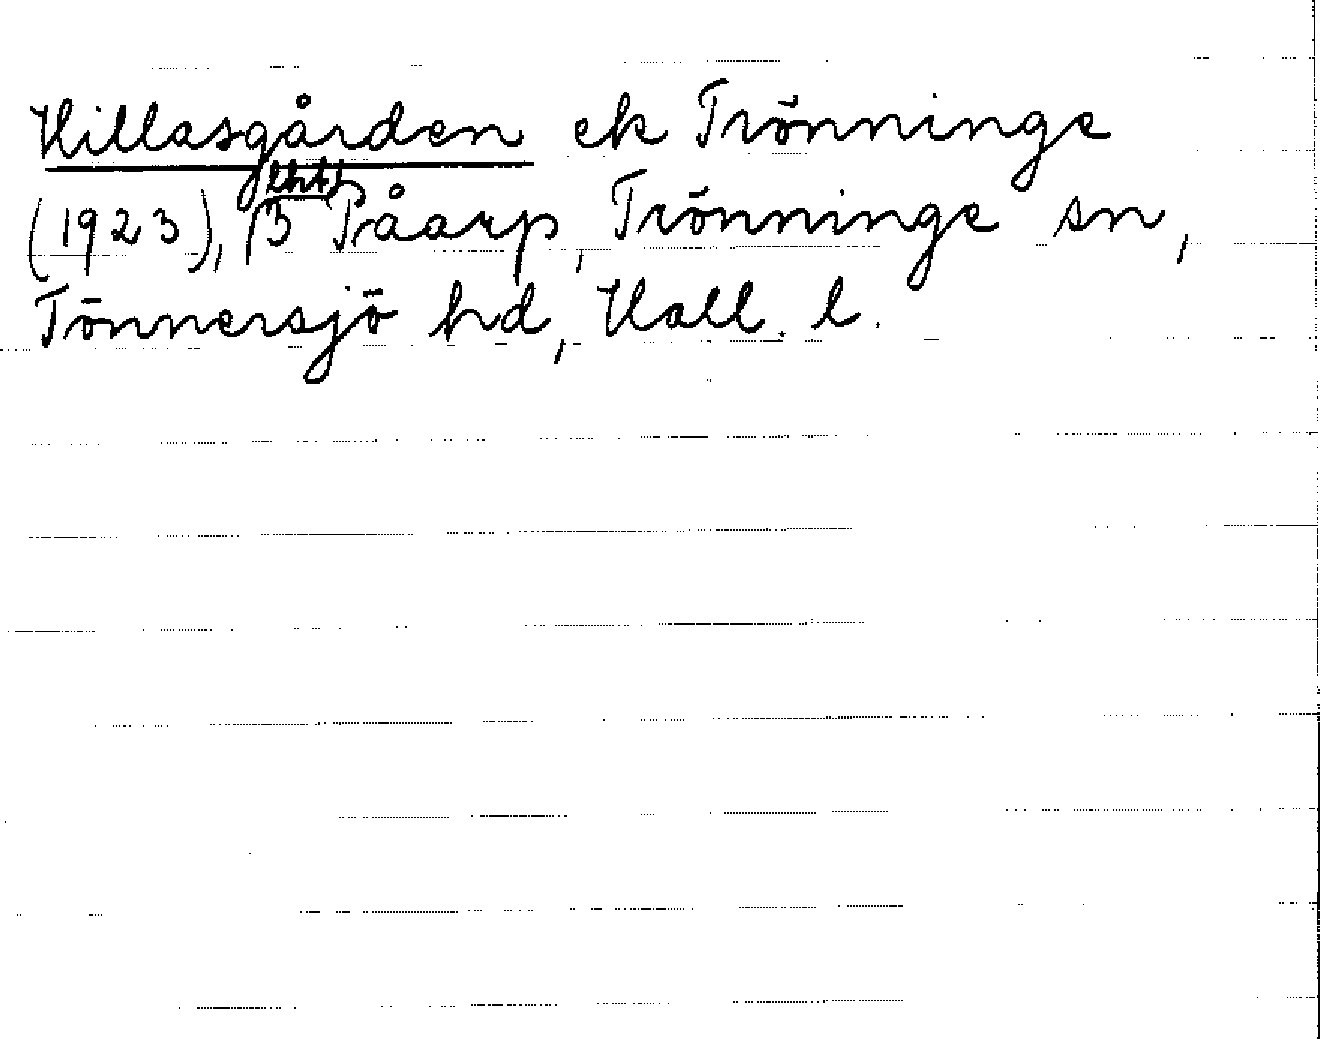 Hillasgården ek Trönninge
(1923), (3 lht) Påarp, Trönninge sn,
Tönnersjö hd, Hall. l.